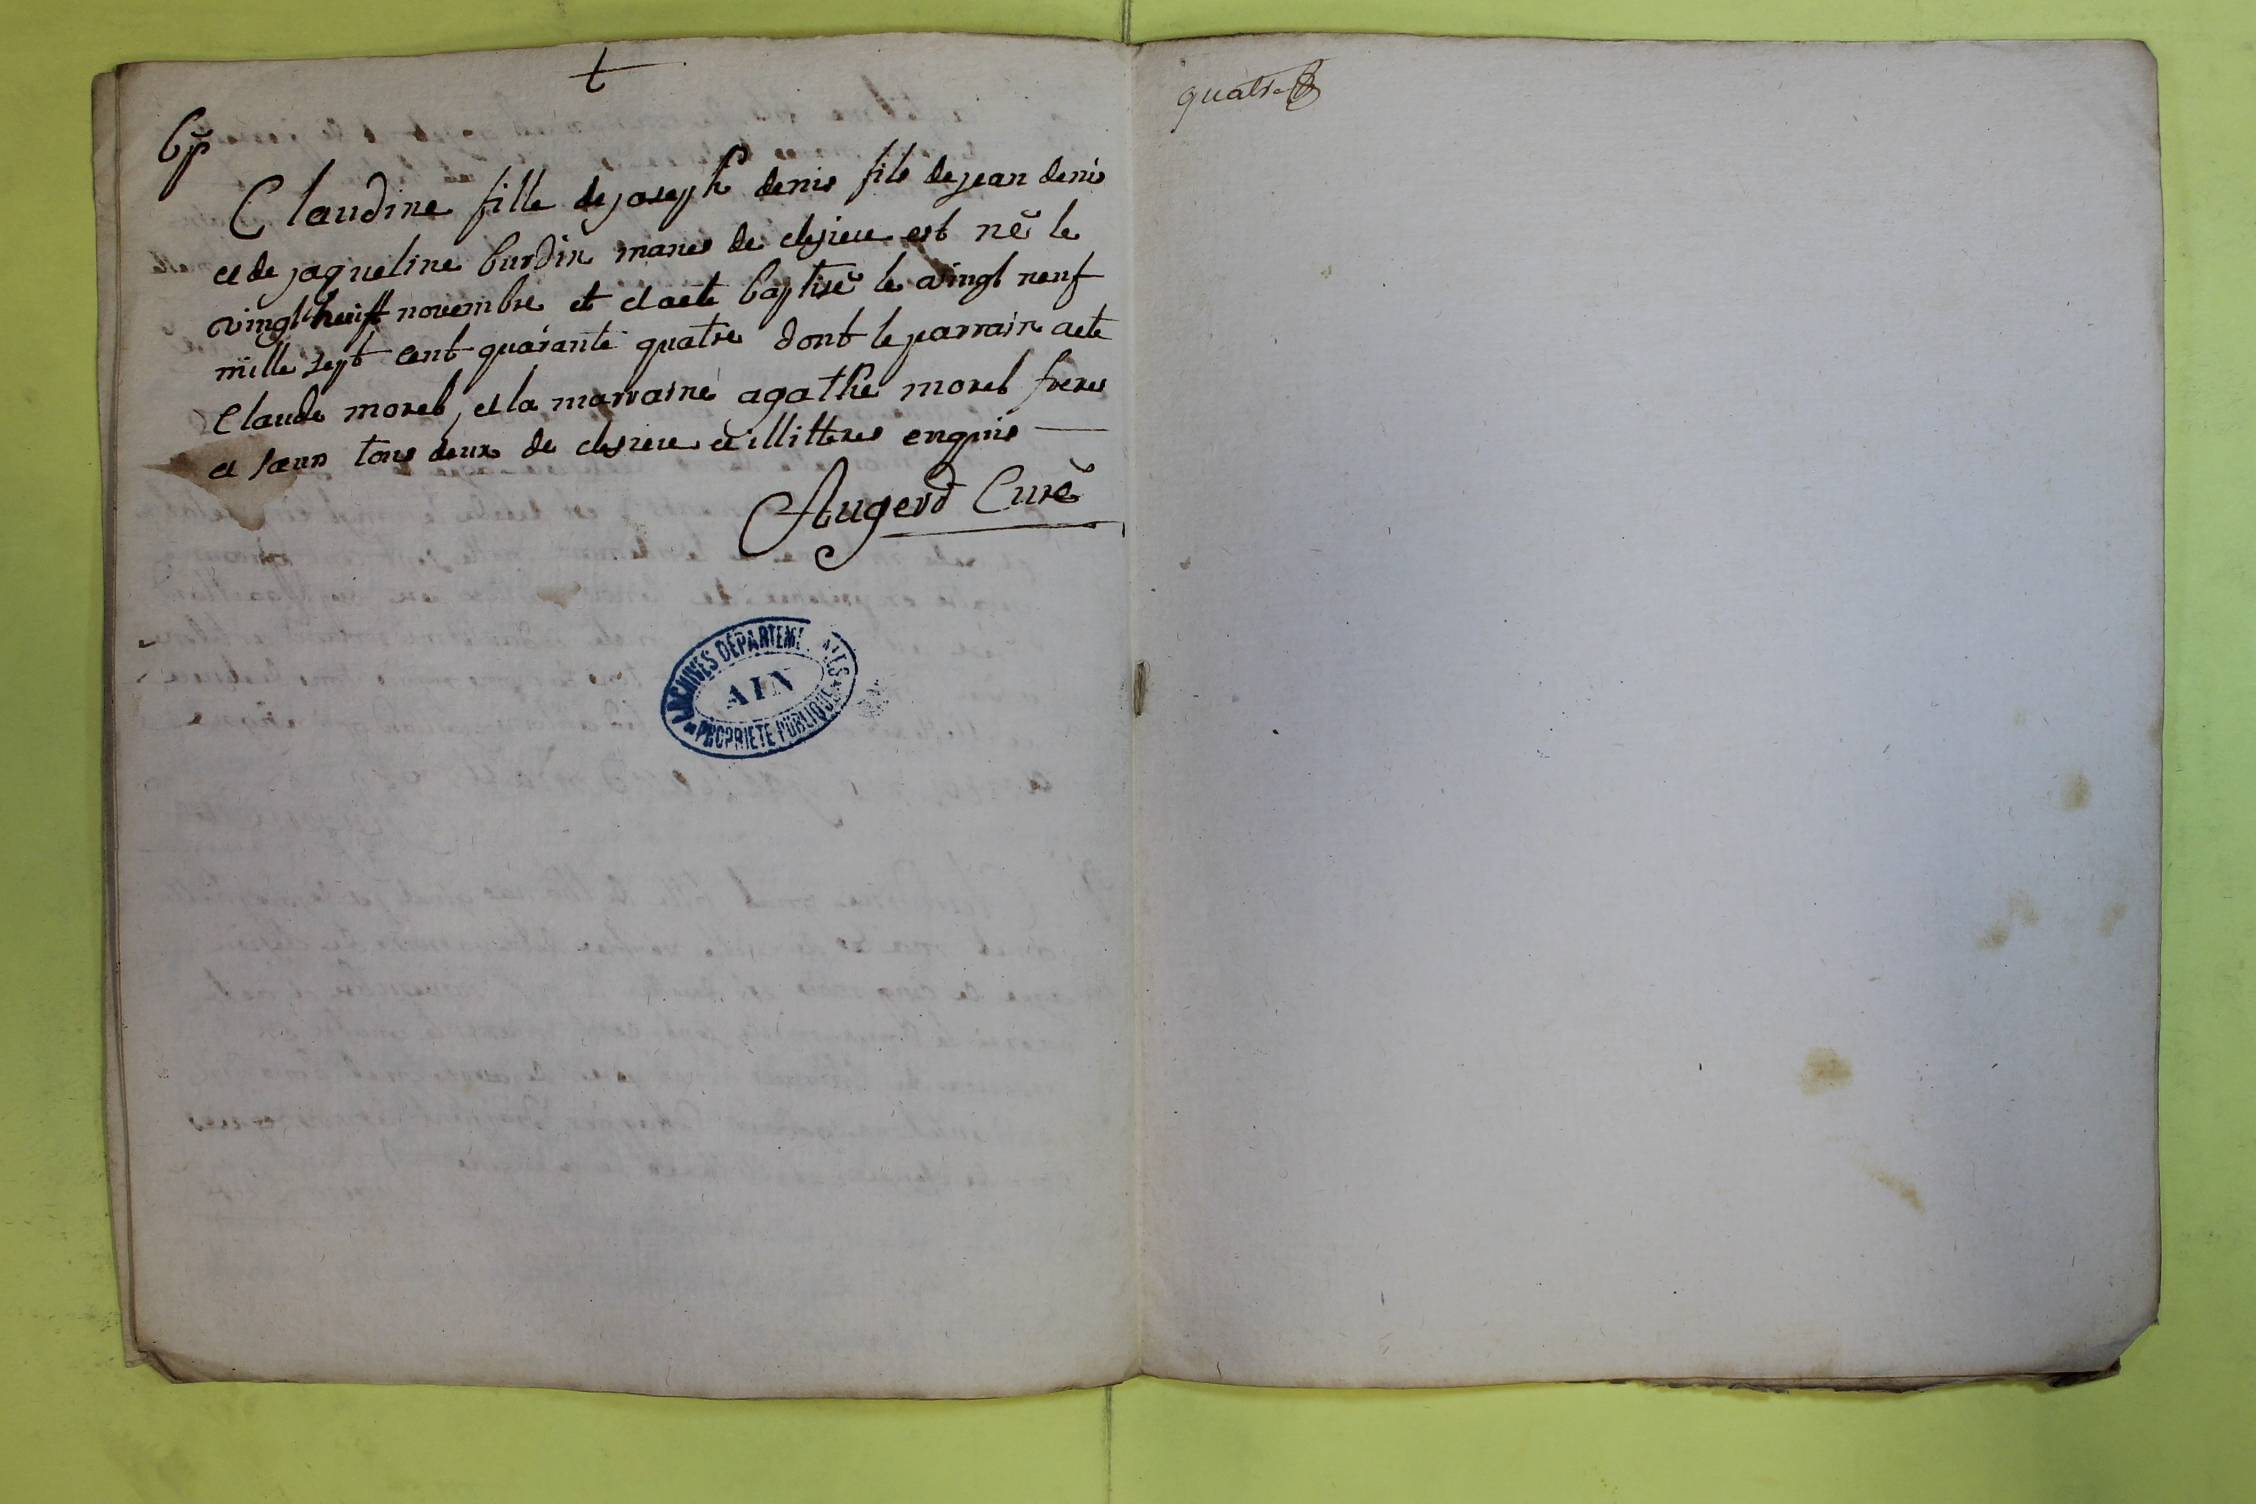 bp
Claudine fille de joseph denis fils de jean denis
et de jaqueline burdin maries de clesieu est né le
vingt huit novembre et et a ete baptisé le vingt neuf
mille sept cent quarante quatre dont le parrain a ete
Claude morel, et la marraine agathe morel freres
et sœur tous deux de clesieu et illitteres enquis
Augerd Curé
ARCHIVES DÉPARTEMENTALES
AIN
PROPRIETE PUBLIQUE
quatre